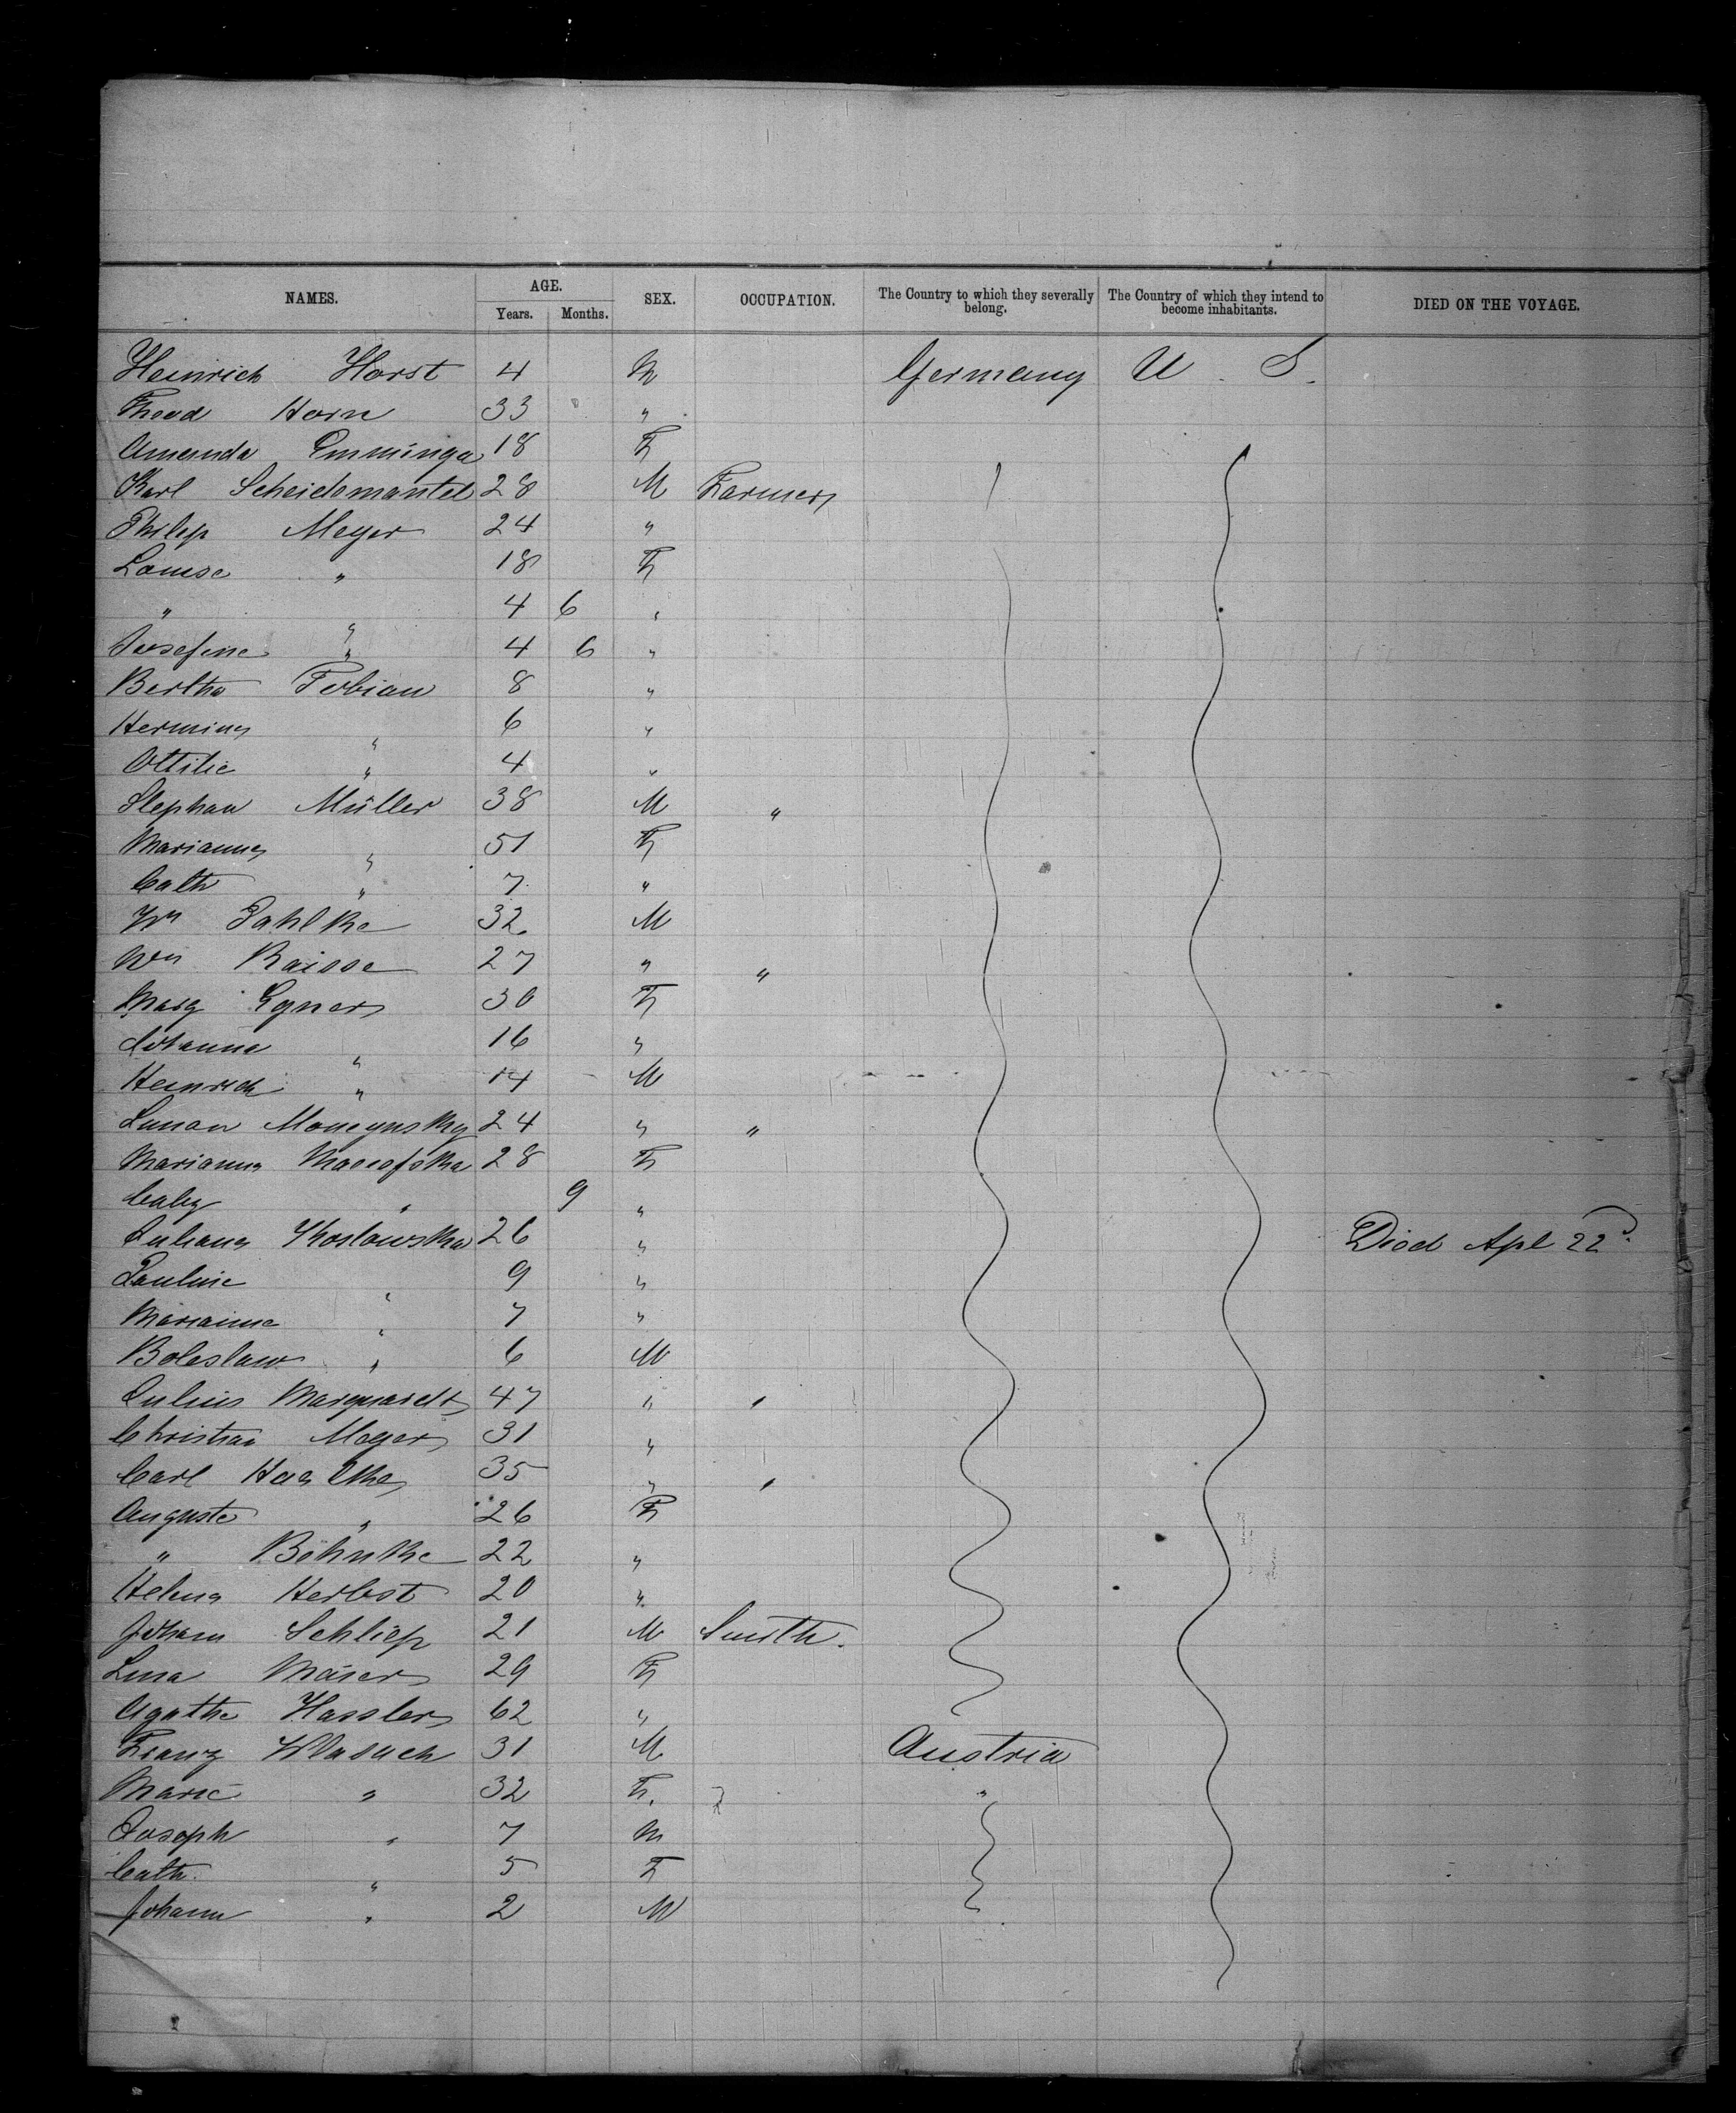 NAMES. AGE. SEX. OCCUPATION. The Country to which they severally belong. The Country of which they intend to become inhabitants. DIED ON THE VOYAGE.
Years. Months.
Heinrich Horst 4 M Germany U. S.
Theod Horn 33 "
Amanda Emminga 18 F
Karl Scheidemantel 28 M Farmer
Philip Meyer 24 "
Louise " 18 F
" " 4 6 "
Josefine " 4 6 "
Bertha Fabian 8 "
Hermine " 6 "
Ottilie " 4 "
Stephan Müller 38 M "
Marianne " 51 F
Cath " 7 "
Wm Pahlke 32 M
Wm Raisse 27 " "
Marg Egner 30 F
Johanna " 16 "
Heinrich " 14 M
24 " "
Marianna 28 F
" 9 "
Juliana Koslowska 26 " Died Apl 22d
Pauline " 9 "
Marianne " 7 "
Boleslaw " 6 M
Julius Marquardt 47 " "
Christian Meyer 31 "
Carl 35 " "
Auguste " 26 F
" Böhnke 22 "
Helena Herbst 20 "
Johann Schliep 21 M Smith.
Lina 29 F
Agathe Hassler 62 "
Franz 31 M Austria
Marie " 32 F. "
Joseph " 7 M
Cath. " 5 F
Johann " 2 M